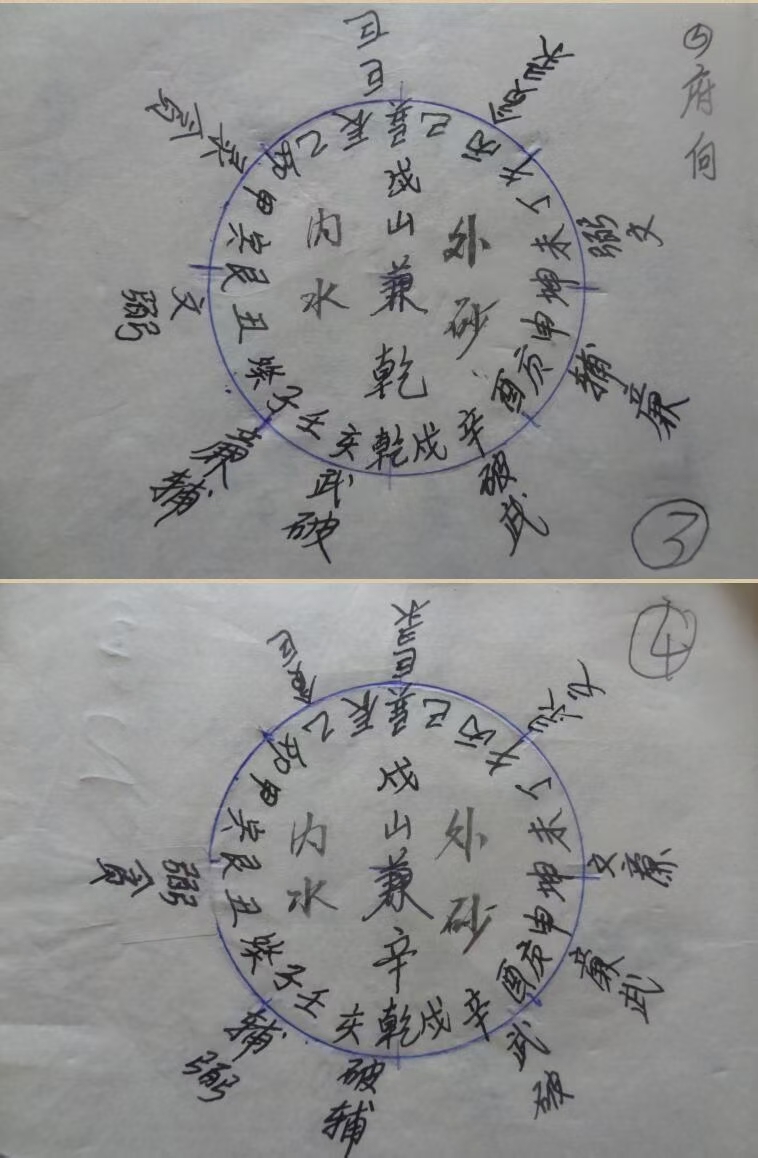 ⑤府向
戌山兼乾
内水
外砂
巳
丙
午
丁
未
坤
申
庚
酉
辛
戌
乾
亥
壬
子
癸
丑
艮
寅
甲
卯
乙
辰
巽
弼
文
輔
廉
破
武
武
破
廉
輔
文
弼
③
④
戌山兼辛
内水
外砂
巳
丙
午
丁
未
坤
申
庚
酉
辛
戌
乾
亥
壬
子
癸
丑
艮
寅
甲
卯
乙
辰
巽
文
廉
廉
武
武
破
破
輔
輔
弼
弼
貪